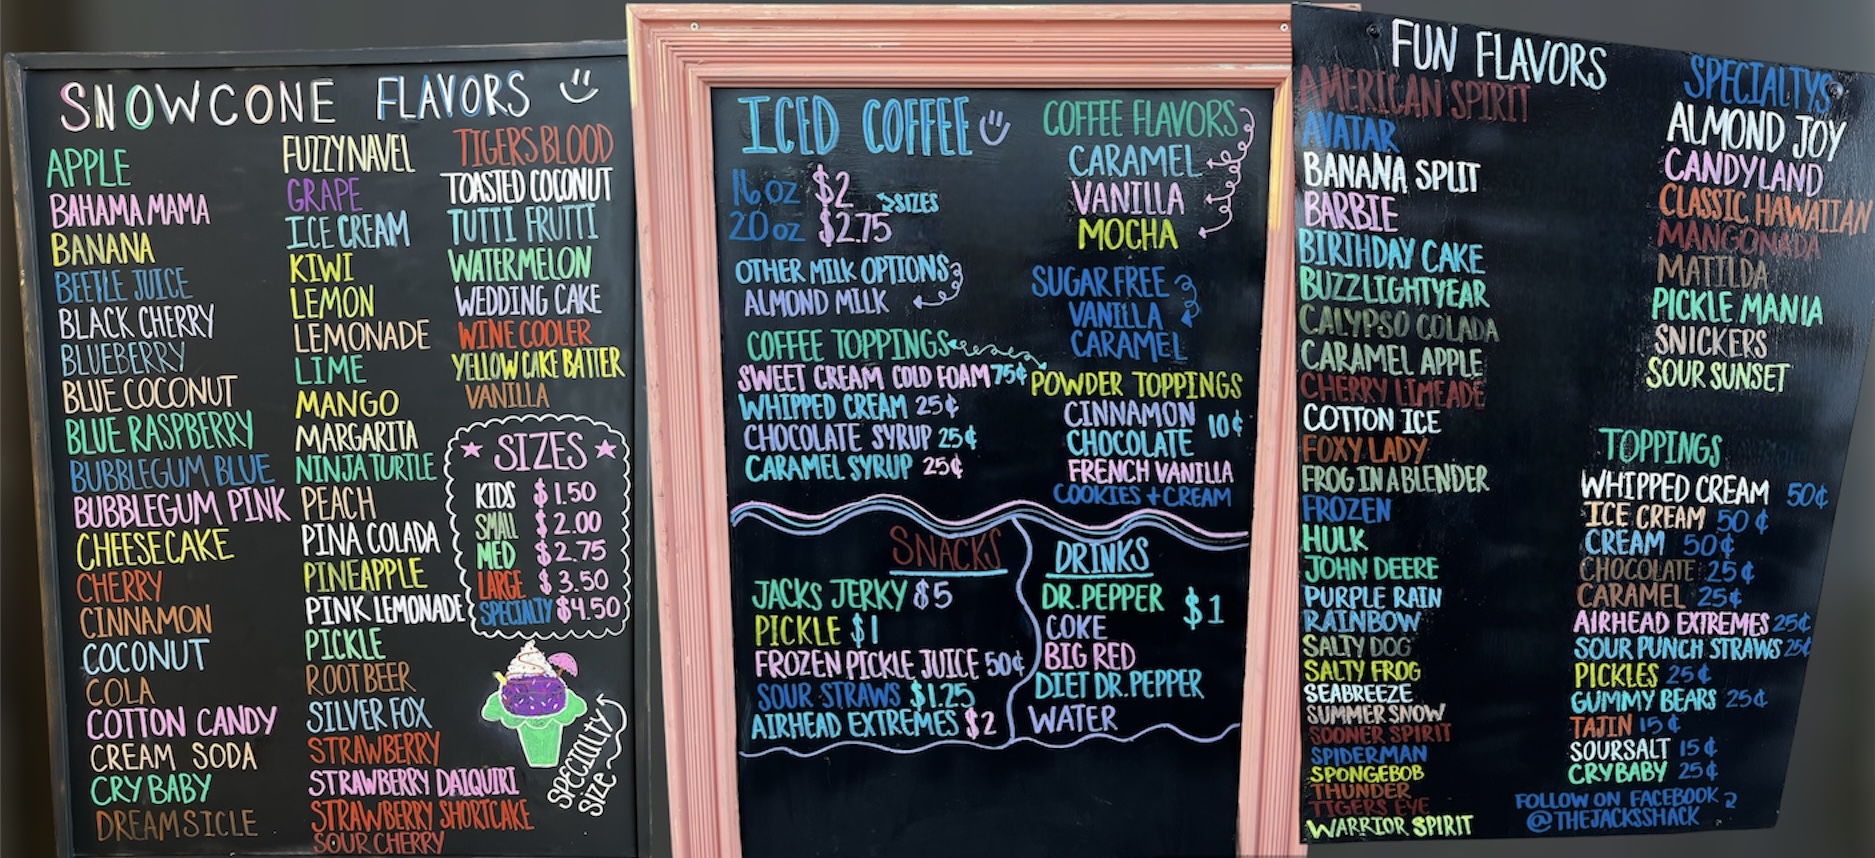 SNOWCONE FLAVORS
APPLE
BAHAMA MAMA
BANANA
BEETLE JUICE
BLACK CHERRY
BLUEBERRY
BLUE COCONUT
BLUE RASPBERRY
BUBBLEGUM BLUE
BUBBLEGUM PINK
CHEESECAKE
CHERRY
CINNAMON
COCONUT
COLA
COTTON CANDY
CREAM SODA
CRY BABY
DREAMSICLE
FUZZY NAVEL
GRAPE
ICE CREAM
KIWI
LEMON
LEMONADE
LIME
MANGO
MARGARITA
NINJA TURTLE
PEACH
PINA COLADA
PINEAPPLE
PINK LEMONADE
PICKLE
ROOTBEER
SILVER FOX
STRAWBERRY
STRAWBERRY DAIQUIRI
STRAWBERRY SHORTCAKE
SOUR CHERRY
TIGERS BLOOD
TOASTED COCONUT
TUTTI FRUTTI
WATERMELON
WEDDING CAKE
WINE COOLER
YELLOW CAKE BATTER
VANILLA
SIZES
KIDS $1.50
SMALL $2.00
MED $2.75
LARGE $3.50
SPECIALTY $4.50
SPECIALTY
SIZE
ICED COFFEE
16 oz $2
20 oz $2.75
SIZES
OTHER MILK OPTIONS
ALMOND MILK
COFFEE TOPPINGS
SWEET CREAM COLD FOAM 75¢
WHIPPED CREAM 25¢
CHOCOLATE SYRUP 25¢
CARAMEL SYRUP 25¢
COFFEE FLAVORS
CARAMEL
VANILLA
MOCHA
SUGAR FREE
VANILLA
CARAMEL
POWDER TOPPINGS
CINNAMON
CHOCOLATE 10¢
FRENCH VANILLA
COOKIES + CREAM
SNACKS
JACKS JERKY $5
PICKLE $1
FROZEN PICKLE JUICE 50¢
SOUR STRAWS $1.25
AIRHEAD EXTREMES $2
DRINKS
DR.PEPPER $1
COKE
BIG RED
DIET DR.PEPPER
WATER
FUN FLAVORS
AMERICAN SPIRIT
AVATAR
BANANA SPLIT
BARBIE
BIRTHDAY CAKE
BUZZLIGHTYEAR
CALYPSO COLADA
CARAMEL APPLE
CHERRY LIMEADE
COTTON ICE
FOXY LADY
FROG IN A BLENDER
FROZEN
HULK
JOHN DEERE
PURPLE RAIN
RAINBOW
SALTY DOG
SALTY FROG
SEABREEZE
SUMMER SNOW
SOONER SPIRIT
SPIDERMAN
SPONGEBOB
THUNDER
TIGERS EYE
WARRIOR SPIRIT
SPECIALTYS
ALMOND JOY
CANDYLAND
CLASSIC HAWAIIAN
MANGONADA
MATILDA
PICKLE MANIA
SNICKERS
SOUR SUNSET
TOPPINGS
WHIPPED CREAM 50¢
ICE CREAM 50¢
CREAM 50¢
CHOCOLATE 25¢
CARAMEL 25¢
AIRHEAD EXTREMES 25¢
SOUR PUNCH STRAWS 25¢
PICKLES 25¢
GUMMY BEARS 25¢
TAJIN 15¢
SOURSALT 15¢
CRYBABY 25¢
FOLLOW ON FACEBOOK
@THEJACKSSHACK